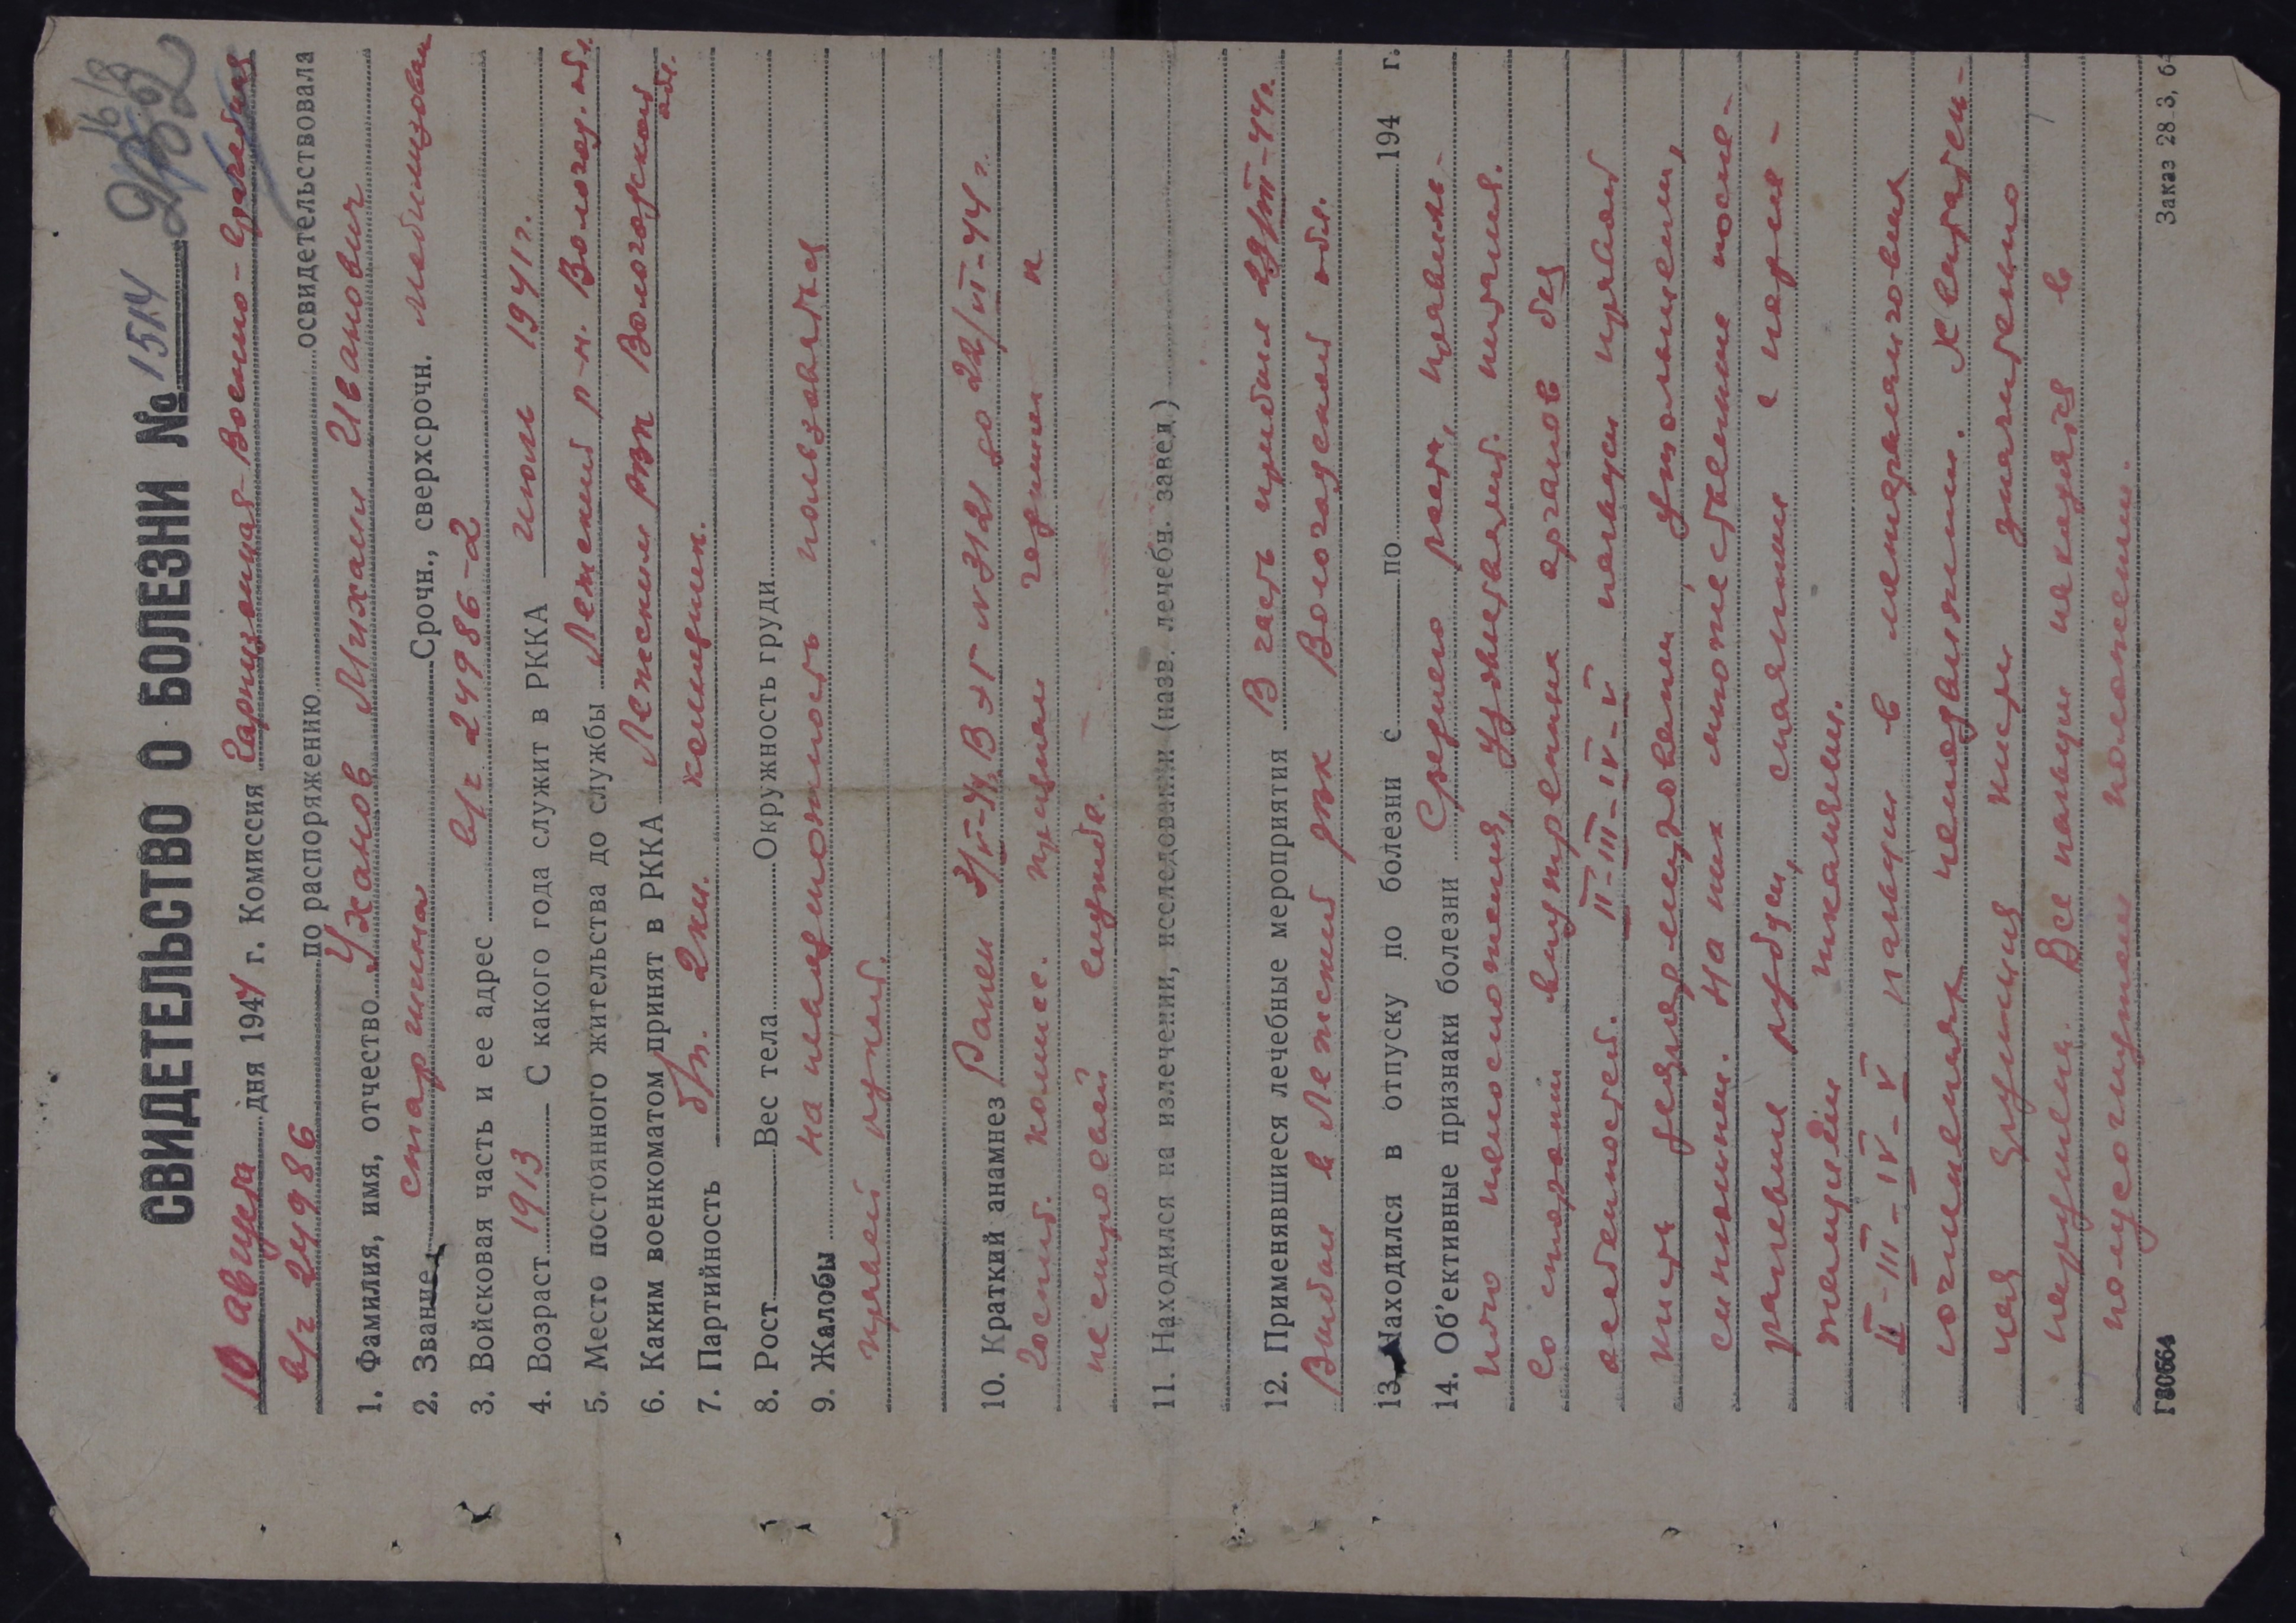 СВИДЕТЕЛЬСТВО О БОЛЕЗНИ № 1514
10 августа дня 1944 г. Комиссия Гарнизонная Военно-врачебная
в/ч 24986 по распоряжению освидетельствовала
1. Фамилия, имя, отчество Уханов Михаил Иванович
2. Звание старшина Срочн., сверхсрочн. мобилизован
3. Войсковая часть и ее адрес в/ч 24986-2
4. Возраст 1913 С какого года служит в РККА июль 1941 г.
5. Место постоянного жительства до службы Лежский р-н. Вологод. обл.
6. Каким военкоматом принят в РККА Лежским РВК Вологодской обл.
7. Партийность б/п. 2кл. колхозник.
8. Рост Вес тела Окружность груди
9. Жалобы на невозможность пользоваться
правой рукой.
10. Краткий анамнез Ранен 3/V-44, В ЭГ № 3121 до 22/VI-44 г.
Госпит. комисс. признан годным к
нестроевой службе.
11. Находился на излечении, исследовании (назв. лечебн. завед.)
12. Применявшиеся лечебные мероприятия В часть прибыл 29/VII-44г.
Выбыл в Лежский РВК Вологодской обл.
13. Находился в отпуску по болезни с по 194 г.
14. Об'ективные признаки болезни Среднего роста, правиль-
ного телосложения, удовлетворит. питания.
Со стороны внутренних органов без
особенностей. II-III-IV-V пальцы правой
кисти деформированы, утолщены,
синюшны. На них множественные после-
раневые рубцы, спаянные с подле-
жащими тканями.
II-III-IV-V пальцы в межфаланговых
сочленениях неподвижны. Хвататель-
ная функция кисти значительно
нарушена. Все пальцы находятся в
полусогнутом положении.
Г80664 Заказ 28-3, 6-